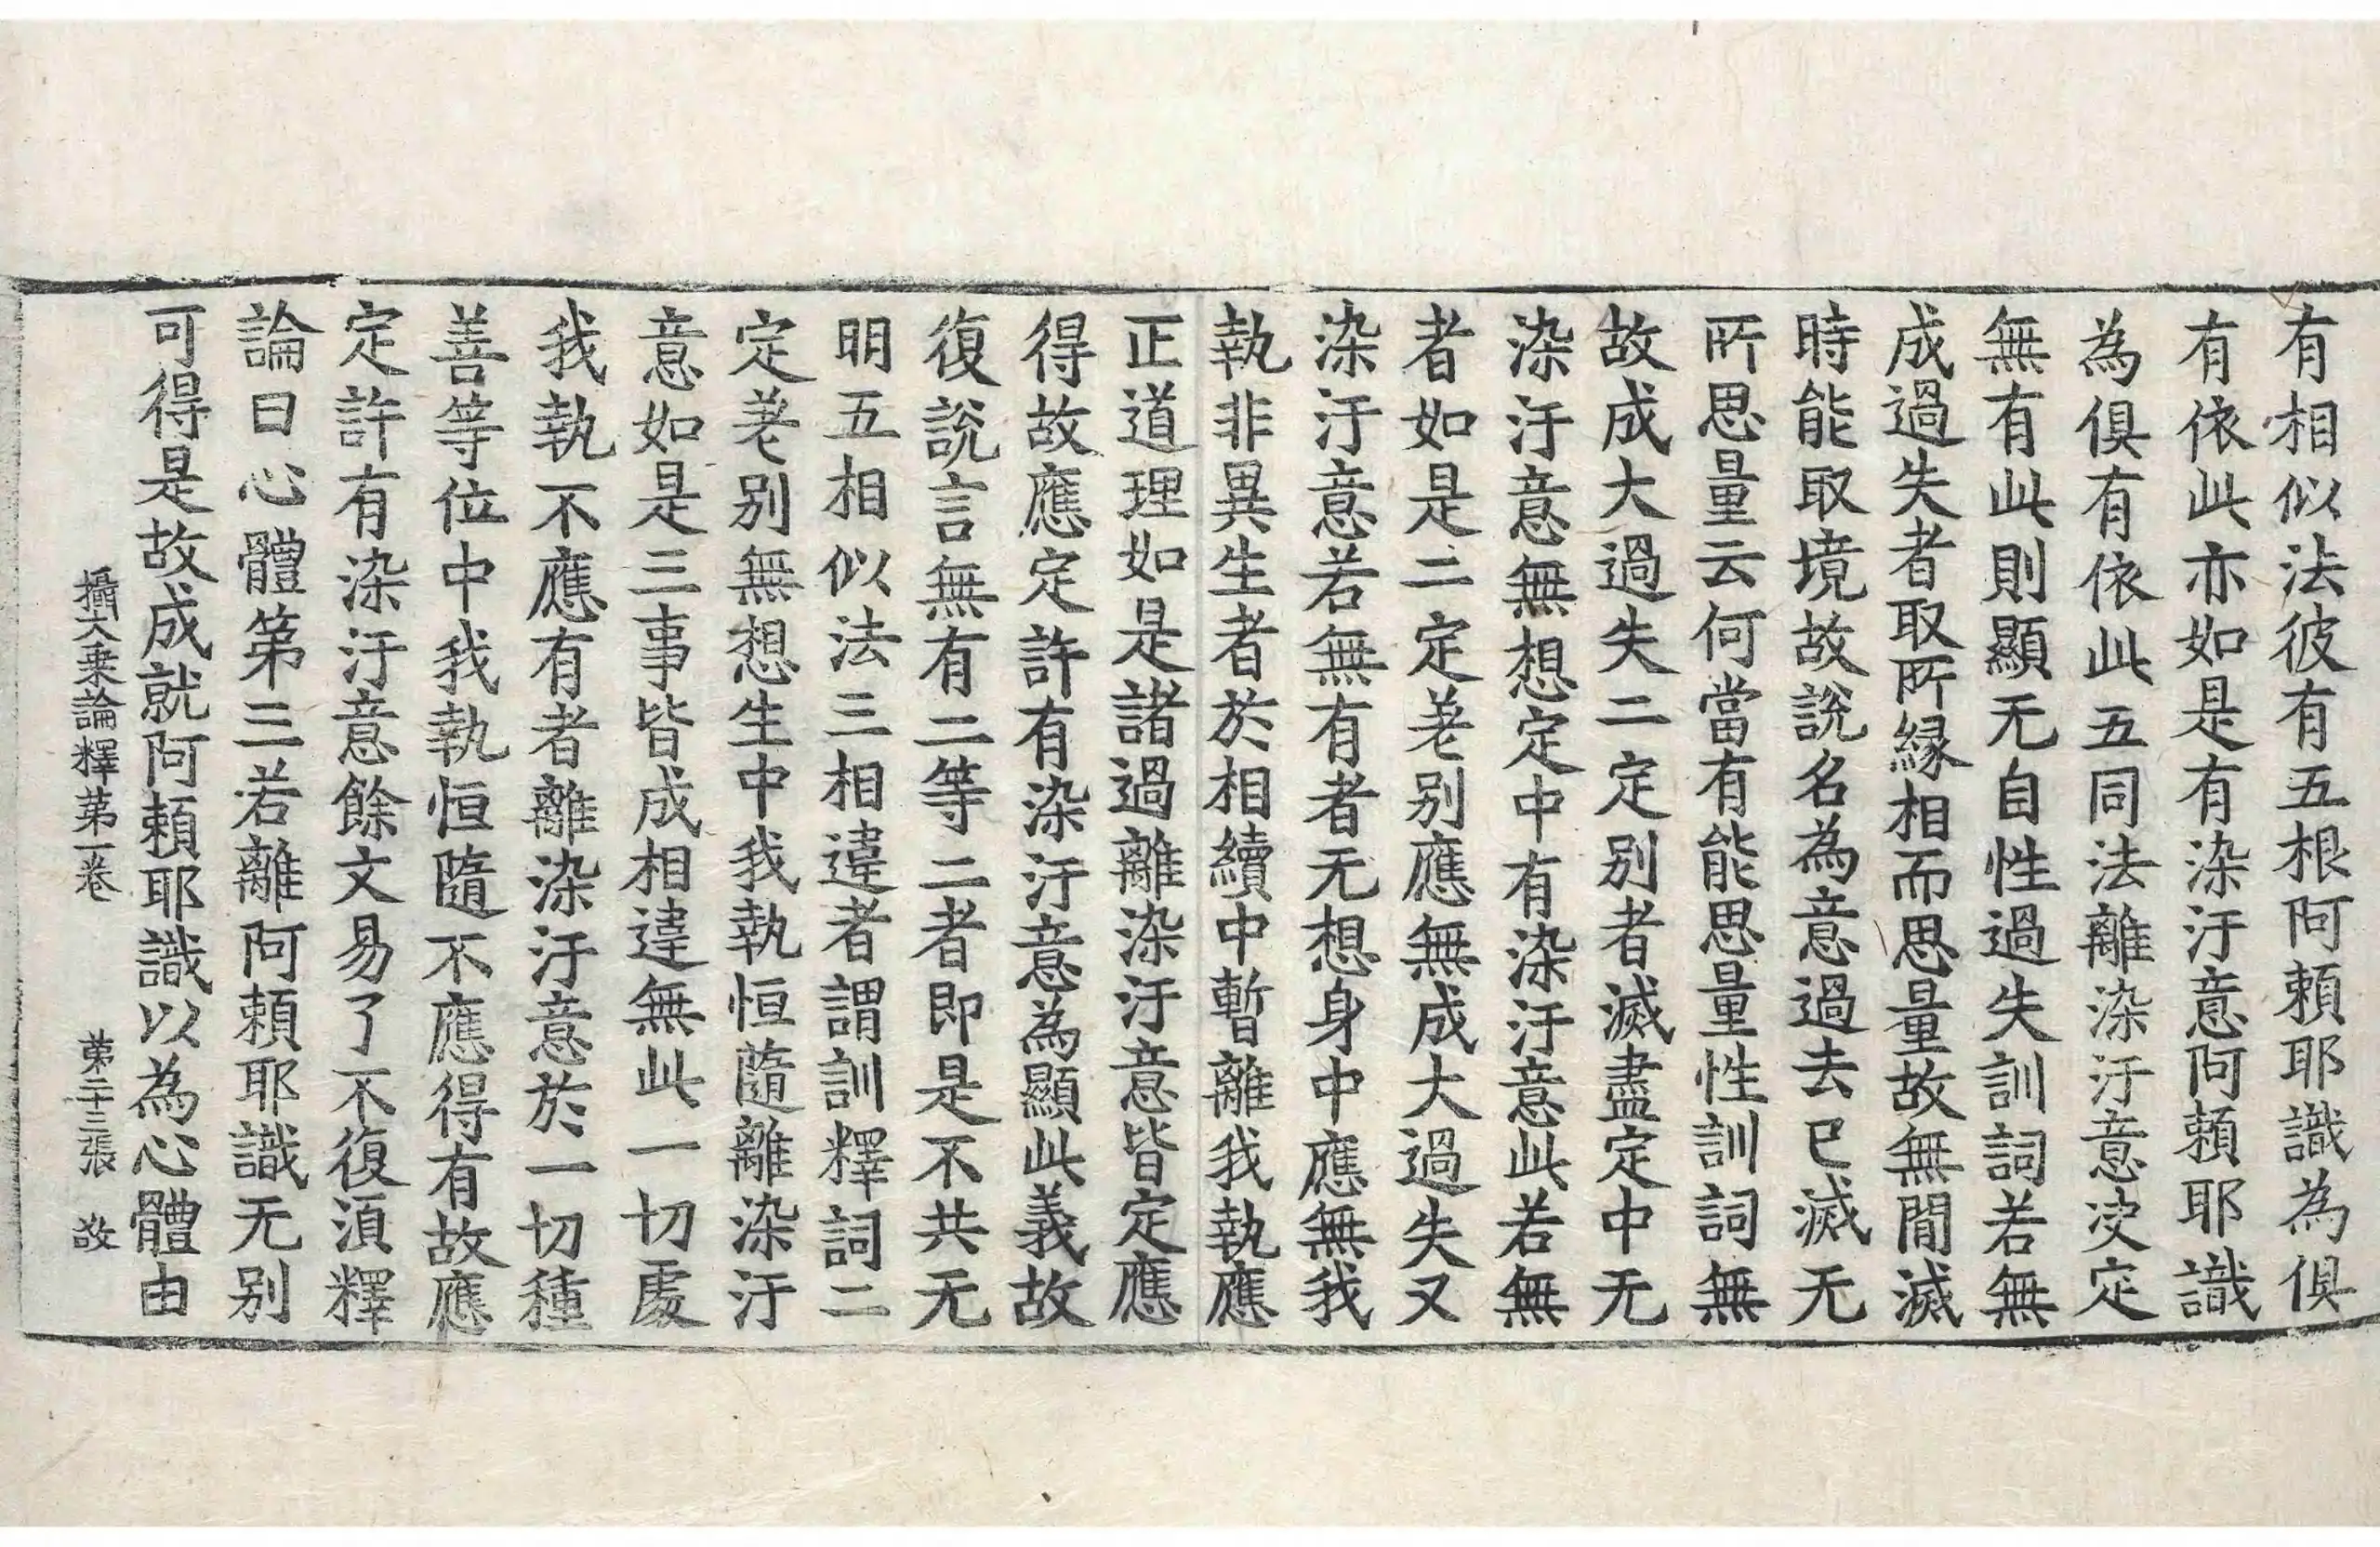 有相似法彼有五根阿頼耶識為俱
有依此亦如是有染汙意阿頼耶識
為俱有依此五同法離染汙意决定
無有此則顯无自性過失訓詞若無
成過失者取所縁相而思量故無間滅
時能取境故說名為意過去已滅无
所思量云何當有能思量性訓詞無
故成大過失二定別者滅盡定中无
染汙意無想定中有染汙意此若無
者如是二定差別應無成大過失又
染汙意若無有者无想身中應無我
執非異生者於相續中暫離我執應
正道理如是諸過離染汙意皆定應
得故應定許有染汙意為顯此義故
復說言無有二等二者即是不共无
明五相似法三相違者謂訓釋詞二
定差別無想生中我執恒隨離染汙
意如是三事皆成相違無此一切處
我執不應有者離染汙意於一切種
善等位中我執恒隨不應得有故應
定許有染汙意餘文易了不復湏釋
論曰心體第三若離阿頼耶識无别
可得是故成就阿頼耶識以為心體由
攝大乗論釋第一卷 第二十三張 敬